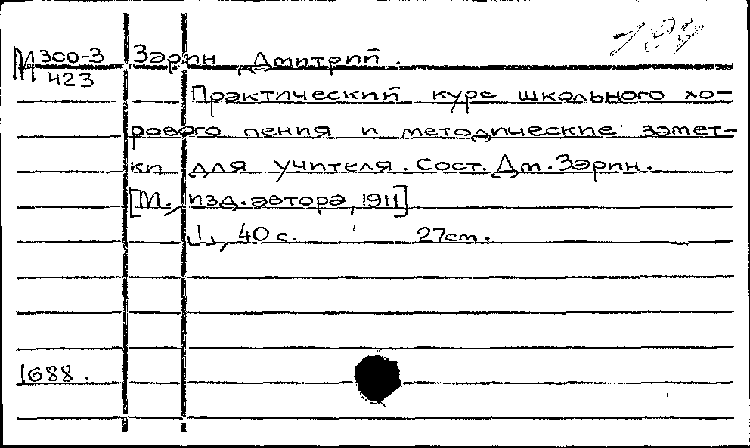 М 300-3
423
Зарин, Дмитрий.
Практический курс школьного хо-
рового пения и методические замет-
ки для учителя. Сост. Дм. Зарин.
[М., изд. автора, 1911]
40 с. 27см.
1688.